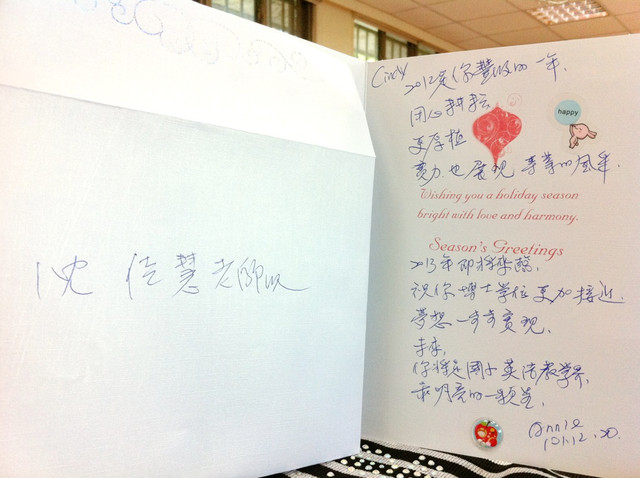 沈佳慧老師收
Cindy
2012是你豐收的一年,
用心耕耘
更厚植
實力也展現專業的風采
happy
Wishing you a holiday season
bright with love and harmony.
Season's Greetings
2013年即將來臨,
祝你博士學位更加接近,
夢想一步步實現,
未來,
你將是國小英語教學界,
最明亮的一顆星,
Annie
101.12.20.